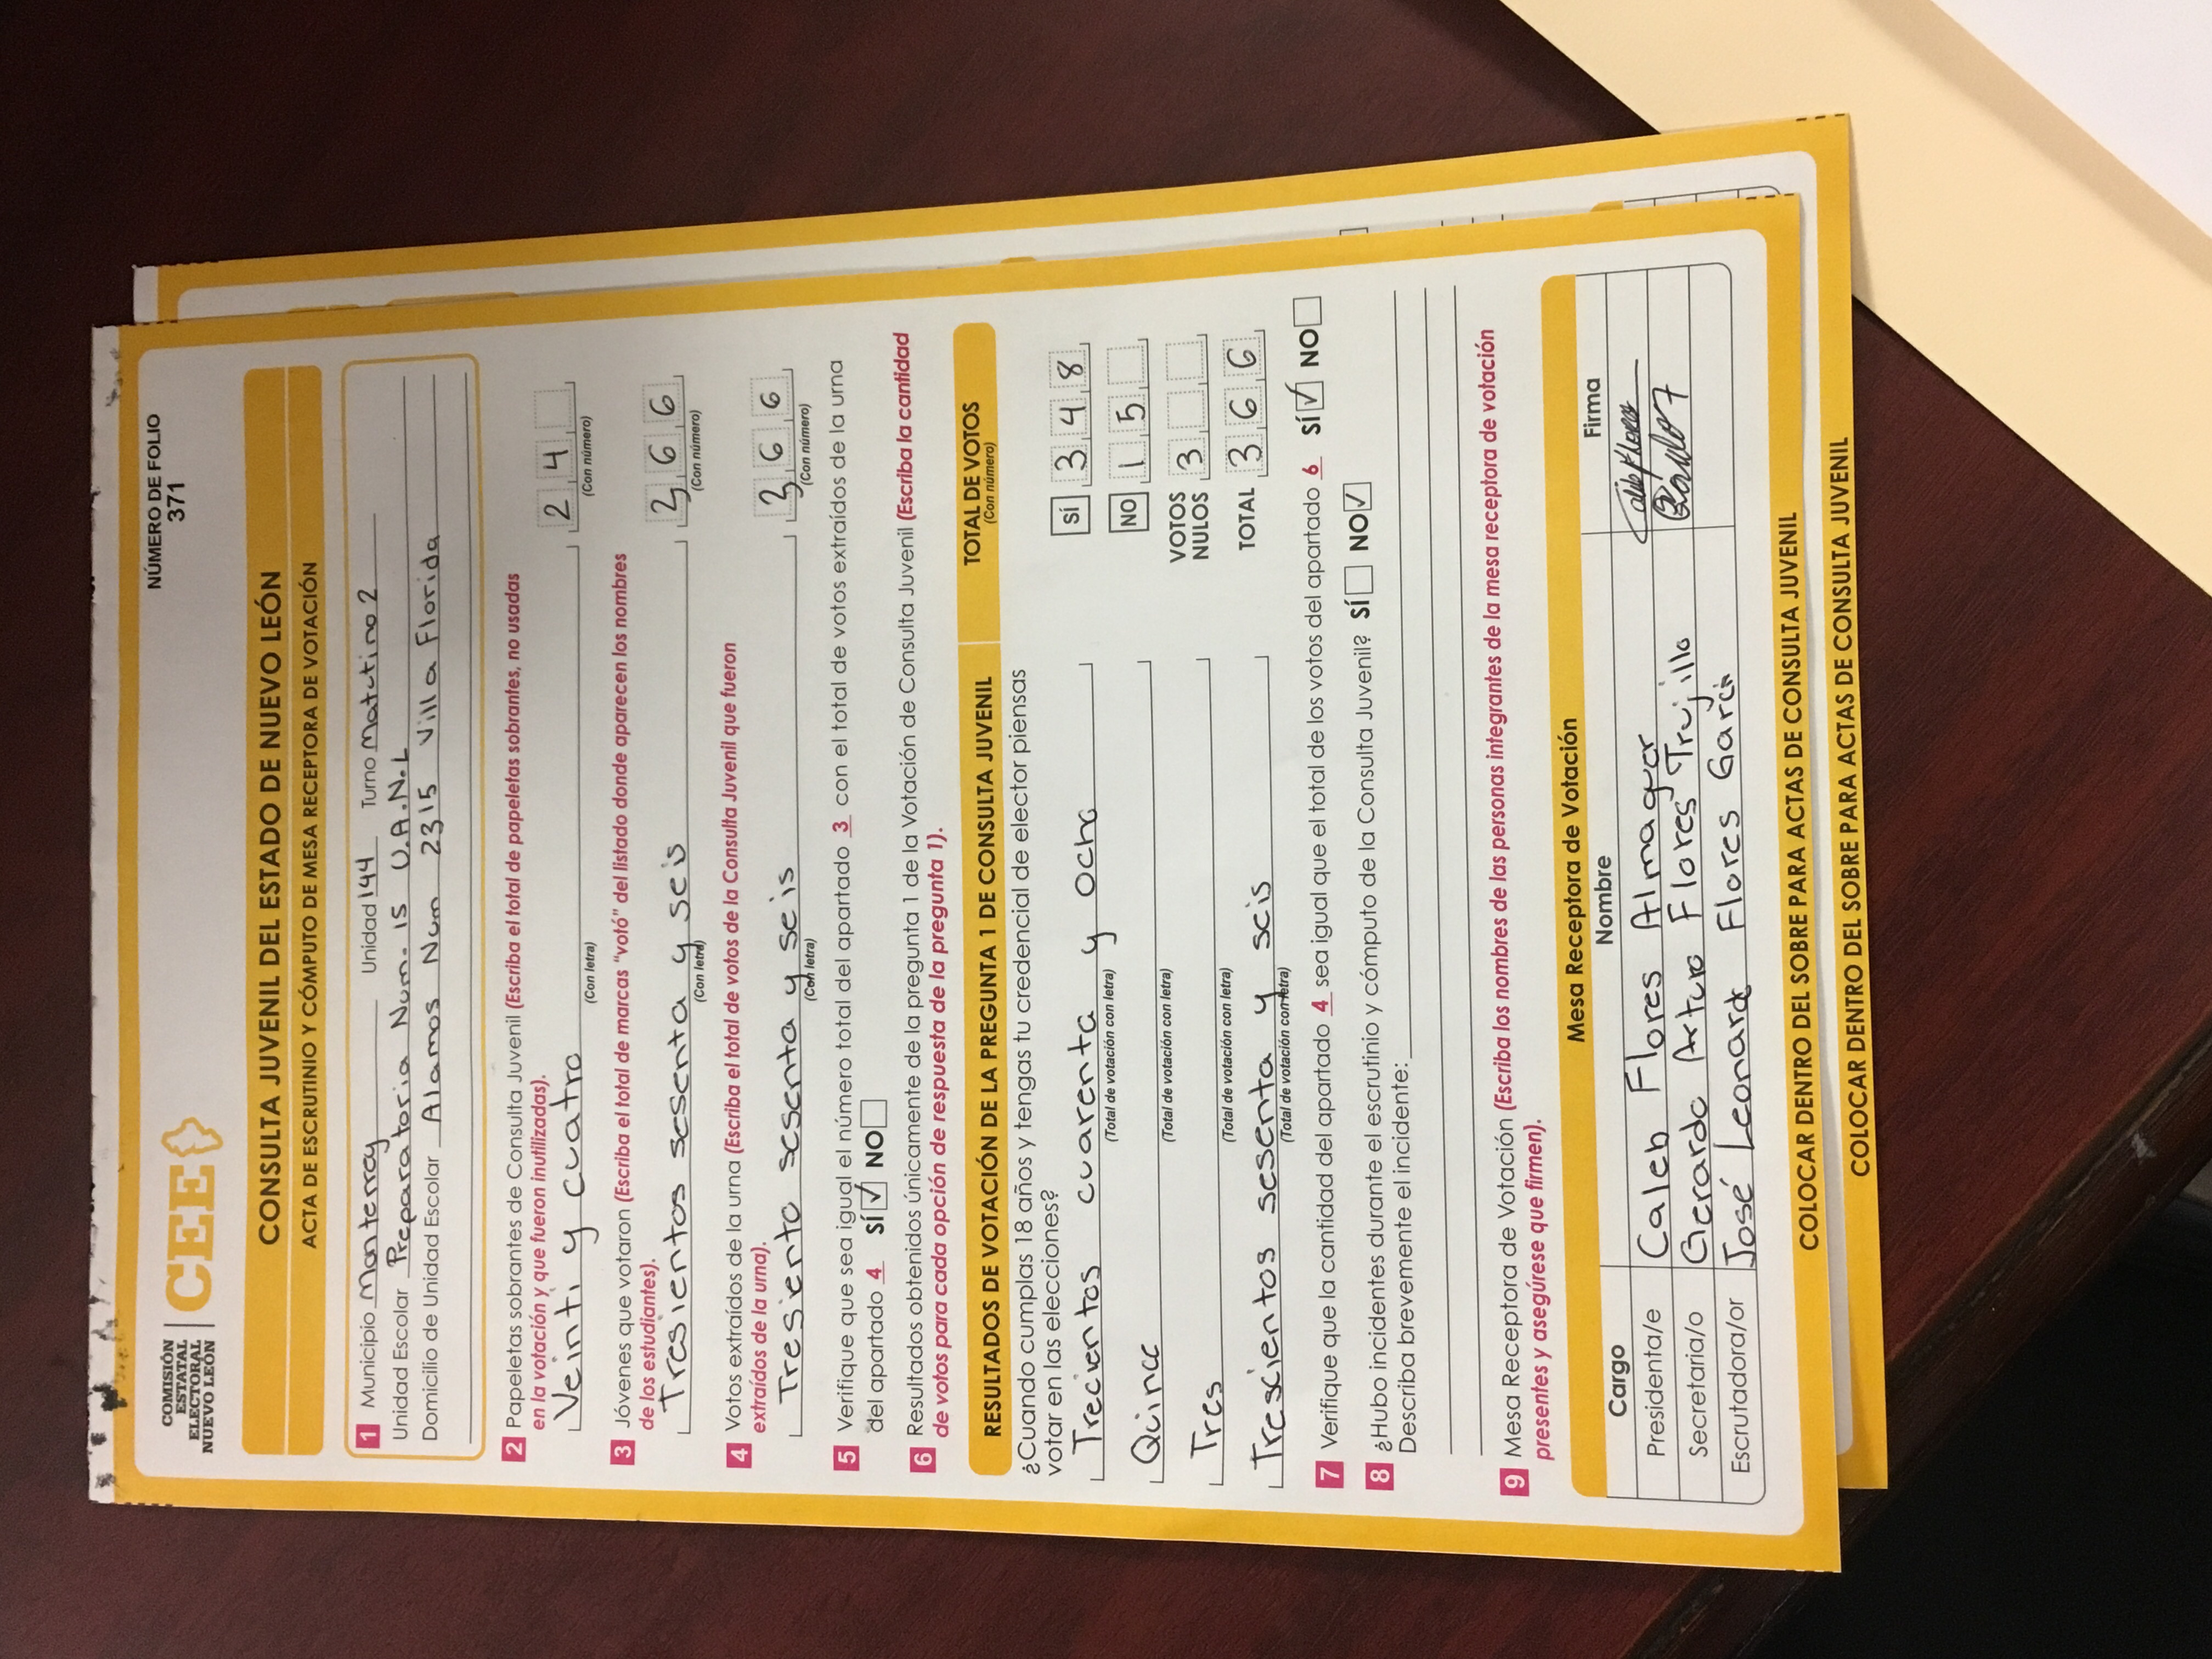 COMISIÓN
ESTATAL
ELECTORAL
NUEVO LEÓN
CEE
NÚMERO DE FOLIO
371
CONSULTA JUVENIL DEL ESTADO DE NUEVO LEÓN
ACTA DE ESCRUTINIO Y CÓMPUTO DE MESA RECEPTORA DE VOTACIÓN
1 Municipio Monterrey Unidad 144 Turno Matutino 2
Unidad Escolar Preparatoria Num. 15 U.A.N.L
Domicilio de Unidad Escolar Alamos Num 2315 Villa Florida
2 Papeletas sobrantes de Consulta Juvenil (Escriba el total de papeletas sobrantes, no usadas
en la votación y que fueron inutilizadas).
Veinti y cuatro 24
(Con letra) (Con número)
3 Jóvenes que votaron (Escriba el total de marcas "votó" del listado donde aparecen los nombres
de los estudiantes).
Tresientos sesenta y seis 366
(Con letra) (Con número)
4 Votos extraídos de la urna (Escriba el total de votos de la Consulta Juvenil que fueron
extraídos de la urna).
Tresiento sesenta y seis 366
(Con letra) (Con número)
5 Verifique que sea igual el número total del apartado 3 con el total de votos extraídos de la urna
del apartado 4 SÍ ✓ NO
6 Resultados obtenidos únicamente de la pregunta 1 de la Votación de Consulta Juvenil (Escriba la cantidad
de votos para cada opción de respuesta de la pregunta 1).
RESULTADOS DE VOTACIÓN DE LA PREGUNTA 1 DE CONSULTA JUVENIL TOTAL DE VOTOS
(Con número)
¿Cuando cumplas 18 años y tengas tu credencial de elector piensas
votar en las elecciones?
Trecientos cuarenta y ocho SÍ 348
(Total de votación con letra)
Quince NO 15
(Total de votación con letra)
Tres VOTOS NULOS 3
(Total de votación con letra)
Trescientos sesenta y seis TOTAL 366
(Total de votación con letra)
7 Verifique que la cantidad del apartado 4 sea igual que el total de los votos del apartado 6 SÍ ✓ NO
8 ¿Hubo incidentes durante el escrutinio y cómputo de la Consulta Juvenil? SÍ NO ✓
Describa brevemente el incidente:
9 Mesa Receptora de Votación (Escriba los nombres de las personas integrantes de la mesa receptora de votación
presentes y asegúrese que firmen).
Mesa Receptora de Votación
Cargo Nombre Firma
Presidenta/e Caleb Flores Almaguer
Secretaria/o Gerardo Arturo Flores Trujillo
Escrutadora/or José Leonardo Flores García
COLOCAR DENTRO DEL SOBRE PARA ACTAS DE CONSULTA JUVENIL
COLOCAR DENTRO DEL SOBRE PARA ACTAS DE CONSULTA JUVENIL